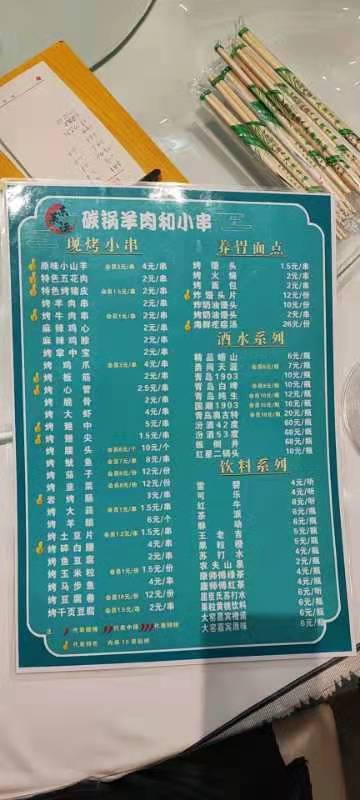 碳锅羊肉和小串
现烤小串
原味小山羊 会员3元/串 4元/串
特色五花肉 2元/串
特色烤猪皮 会员1.5元/串 2元/串
烤羊肉串 2元/串
烤牛肉串 会员1元/串 2元/串
麻辣鸡心 2元/串
麻辣鸡胗 2元/串
烤掌中宝 2元/串
烤鸡爪 会员3元/串 4元/串
烤板筋 2元/串
烤心管 2.5元/串
烤脆骨 2元/串
烤大虾 4元/串
烤翅中 5元/串
烤翅尖 1.5元/串
烤腰头 10元/个
烤鱿鱼 8元/串
烤茄子 12元/份
烤韭菜 12元/份
岩烤肠 3元/串
烤大蒜 1.5元/串
烤羊腰 6元/个
烤土豆片 会员1.2元/串 1.5元/串
烤碎白腰 4元/串
烤鱼豆腐 2元/串
烤玉米粒 会员1元/份 12元/份
烤马步鱼 4元/串
烤豆腐卷 12元/份
烤千页豆腐 会员1.5元/串 2元/串
注： 代表微辣 代表中辣 代表特辣
代表特色 肉串10串起烤
养胃面点
烤馒头 1.5元/串
烤火烧 2元/串
烤面包 2元/串
炸馒头片 12元/份
烤奶油馒头 2元/串
炸奶油馒头 10元/份
海鲜疙瘩汤 26元/份
酒水系列
精品崂山 6元/瓶
7元/瓶
青岛1903 10元/瓶
青岛白啤 10元/瓶
青岛纯生 12元/瓶
国潮1903 16元/瓶
青岛奥古特 20元/瓶
汾酒42度 60元/瓶
汾酒53度 68元/瓶
10元/瓶
红星二锅头 10元/瓶
饮料系列
雪碧 4元/听
可乐 4元/听
红牛 8元/听
5元/瓶
王老吉 6元/瓶
果粒橙 4元/瓶
苏打水 4元/瓶
农夫山泉 2元/瓶
康师傅绿茶 4元/瓶
康师傅红茶 4元/瓶
屈臣氏苏打水
果粒黄桃饮料
大窑嘉宾橙诺
大窑嘉宾原味